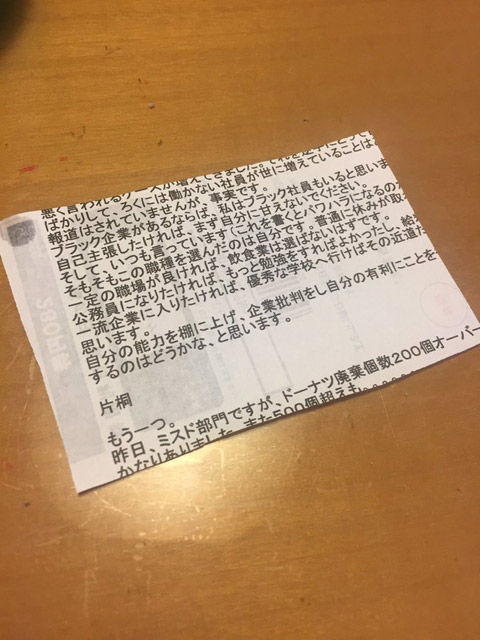 悪く言われるケースが増えてきました。それを逆手にとって
ばかりして、ろくには働かない社員が世に増えていることは
報道はされていませんが、事実です。
ブラック企業があるならば、私はブラック社員もいると思いま
自己主張したければ、まず自分に甘えないでください。
そして、いつも言っています(これを書くとパワハラになるのか
そもそもこの職種を選んだのは自分です。普通に休みが取
一定の職場が良ければ、飲食業は選ばないはずです。
公務員になりたければ、もっと勉強をすればよかったし、給
一流企業に入りたければ、優秀な学校へ行けばその近道だ
思います。
自分の能力を棚に上げ、企業批判をし自分の有利にことを
するのはどうかな、と思います。
片桐
もう一つ。
昨日、ミスド部門ですが、ドーナツ廃棄個数200個オーバー
かなりありました。また500個超えも